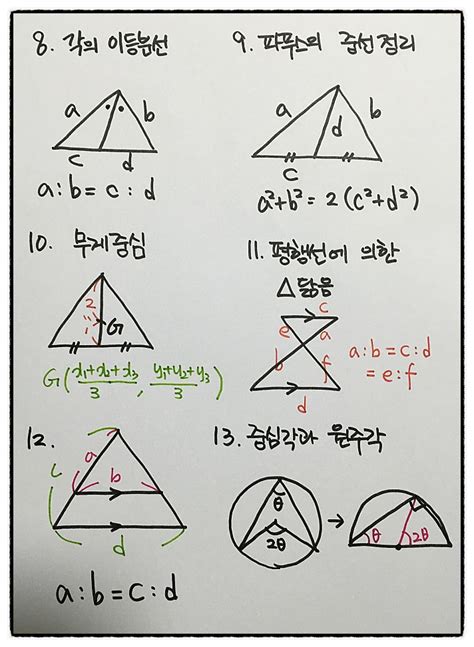 8. 각의 이등분선
a
b
c
d
a:b = c:d
9. 파푸스의 중선정리
a
b
d
c
a²+b² = 2(c²+d²)
10. 무게중심
2
1
G
G(x₁+x₂+x₃/3, y₁+y₂+y₃/3)
11. 평행선에 의한
△닮음
c
e
a
b
f
d
a:b=c:d
=e:f
12.
a
c
b
d
a:b=c:d
13. 중심각과 원주각
θ
2θ
→
θ
2θ